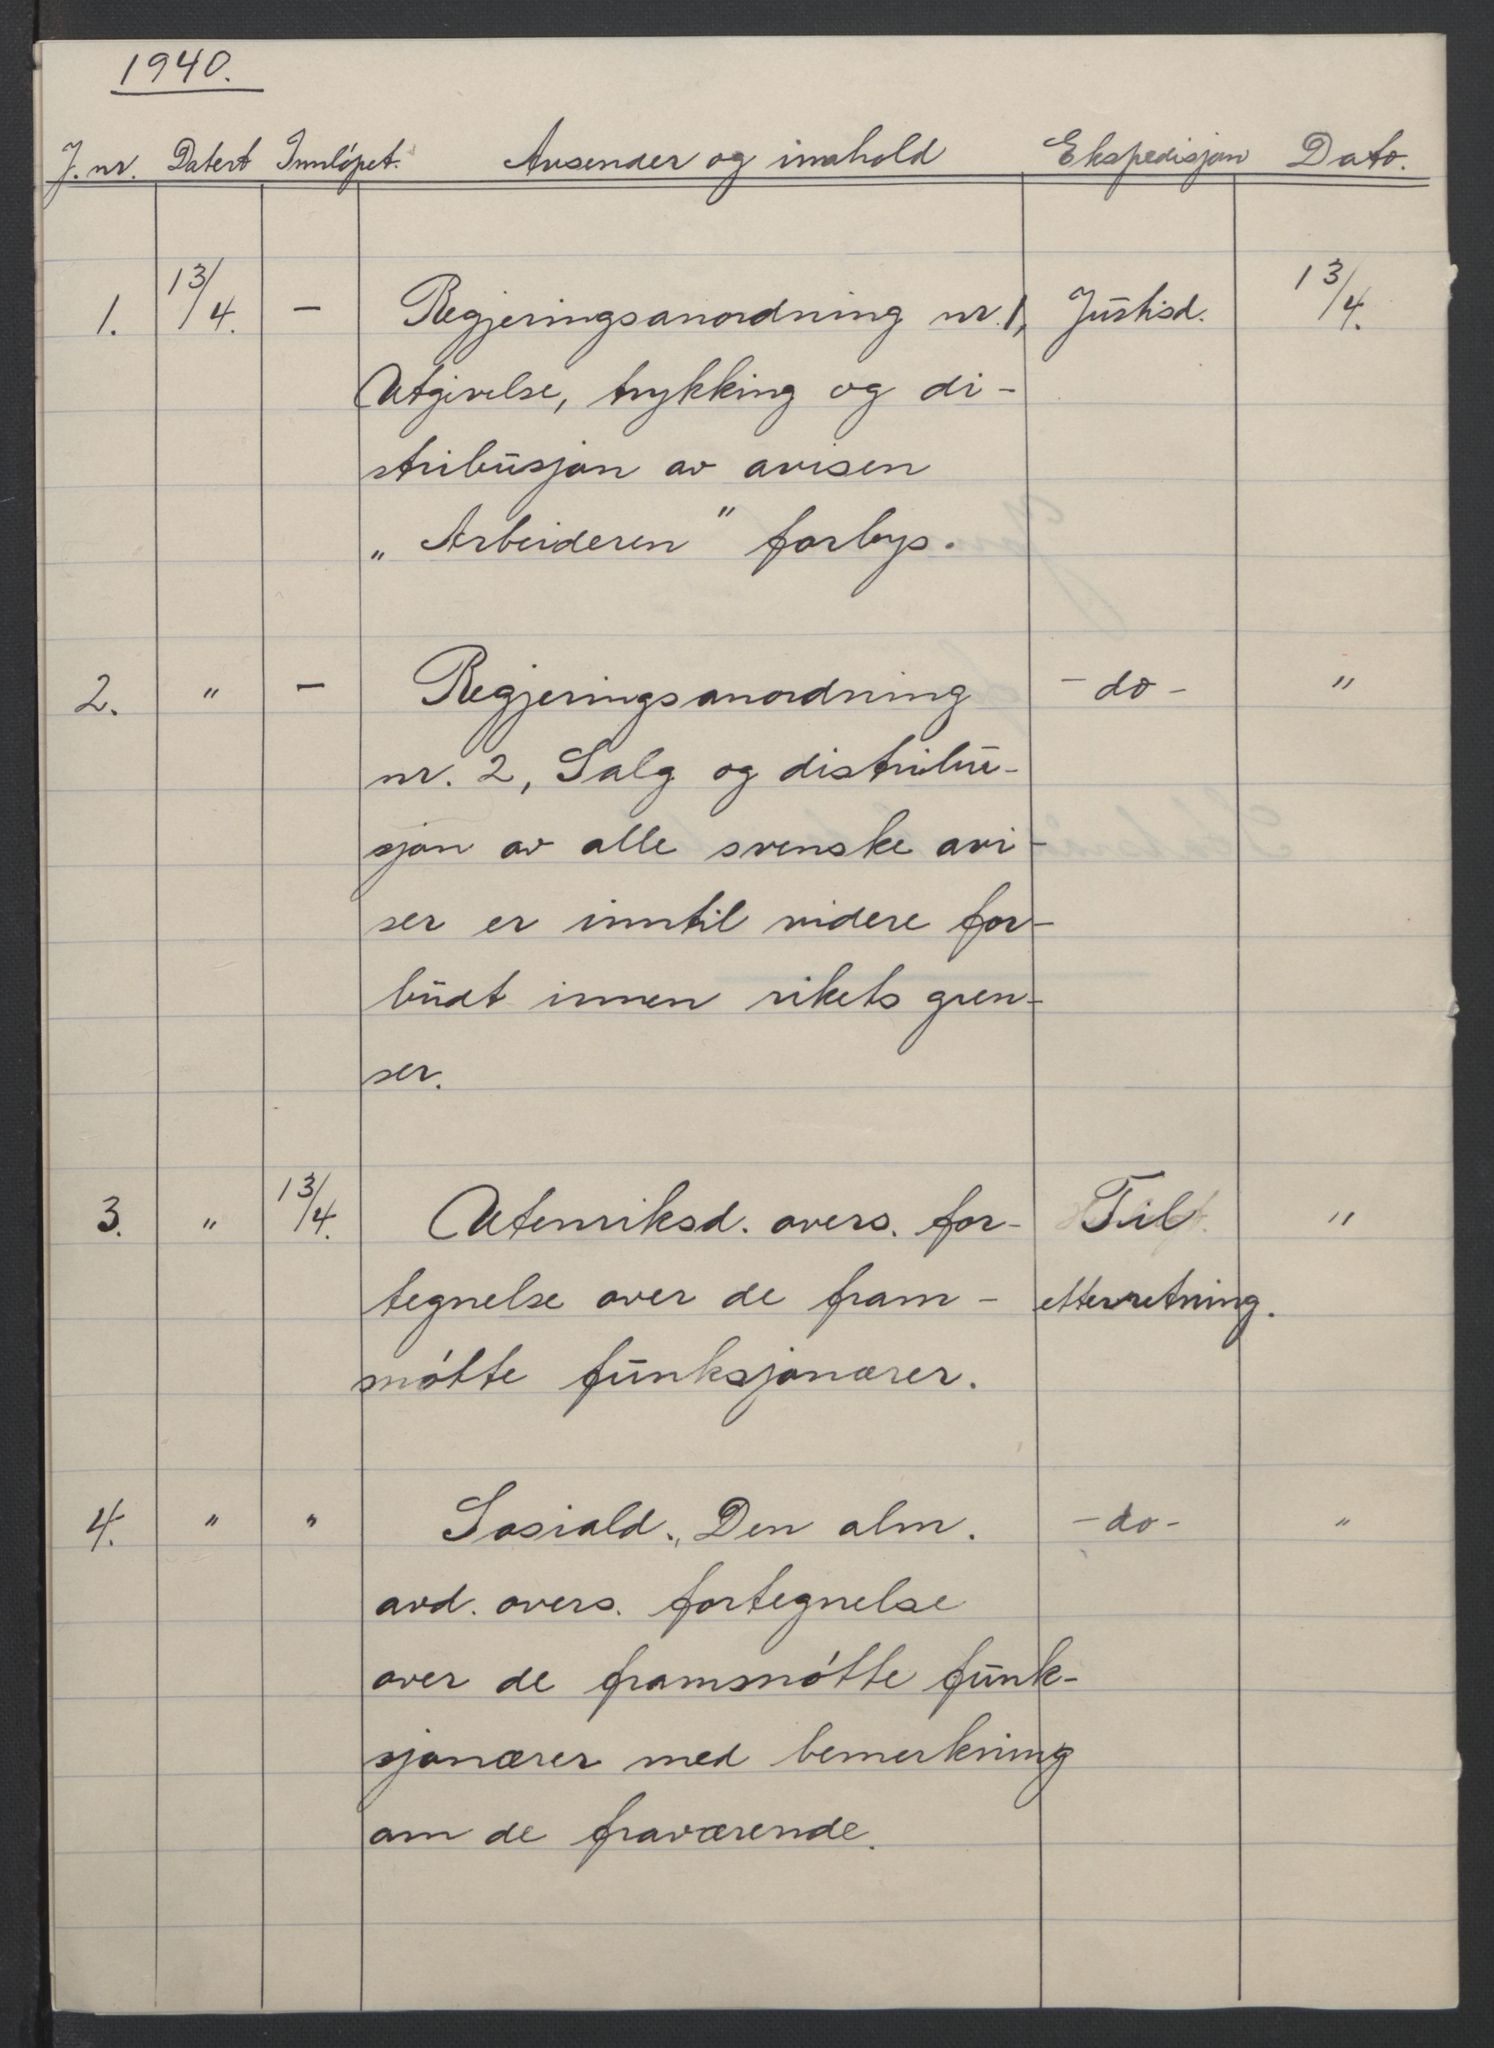 1940.
J. nr. Datert Innløpet. Avsender og innhold Ekspedisjon Dato.
1. 13/4. — Regjeringsanordning nr. 1, Justisd. 13/4.
Utgivelse, trykking og di-
stribusjon av avisen
„Arbeideren" forbys.
2. " — Regjeringsanordning - do - "
nr. 2, Salg og distribu-
sjon av alle svenske avi-
ser er inntil videre for-
budt innen rikets gren-
ser.
3. " 13/4. Utenriksd. overs. for- Til "
tegnelse over de fram- etterretning.
møtte funksjonærer.
4. " " Sosiald., Den alm. - do - "
avd. overs. fortegnelse
over de frammøtte funk-
sjonærer med bemerkning
om de fraværende.